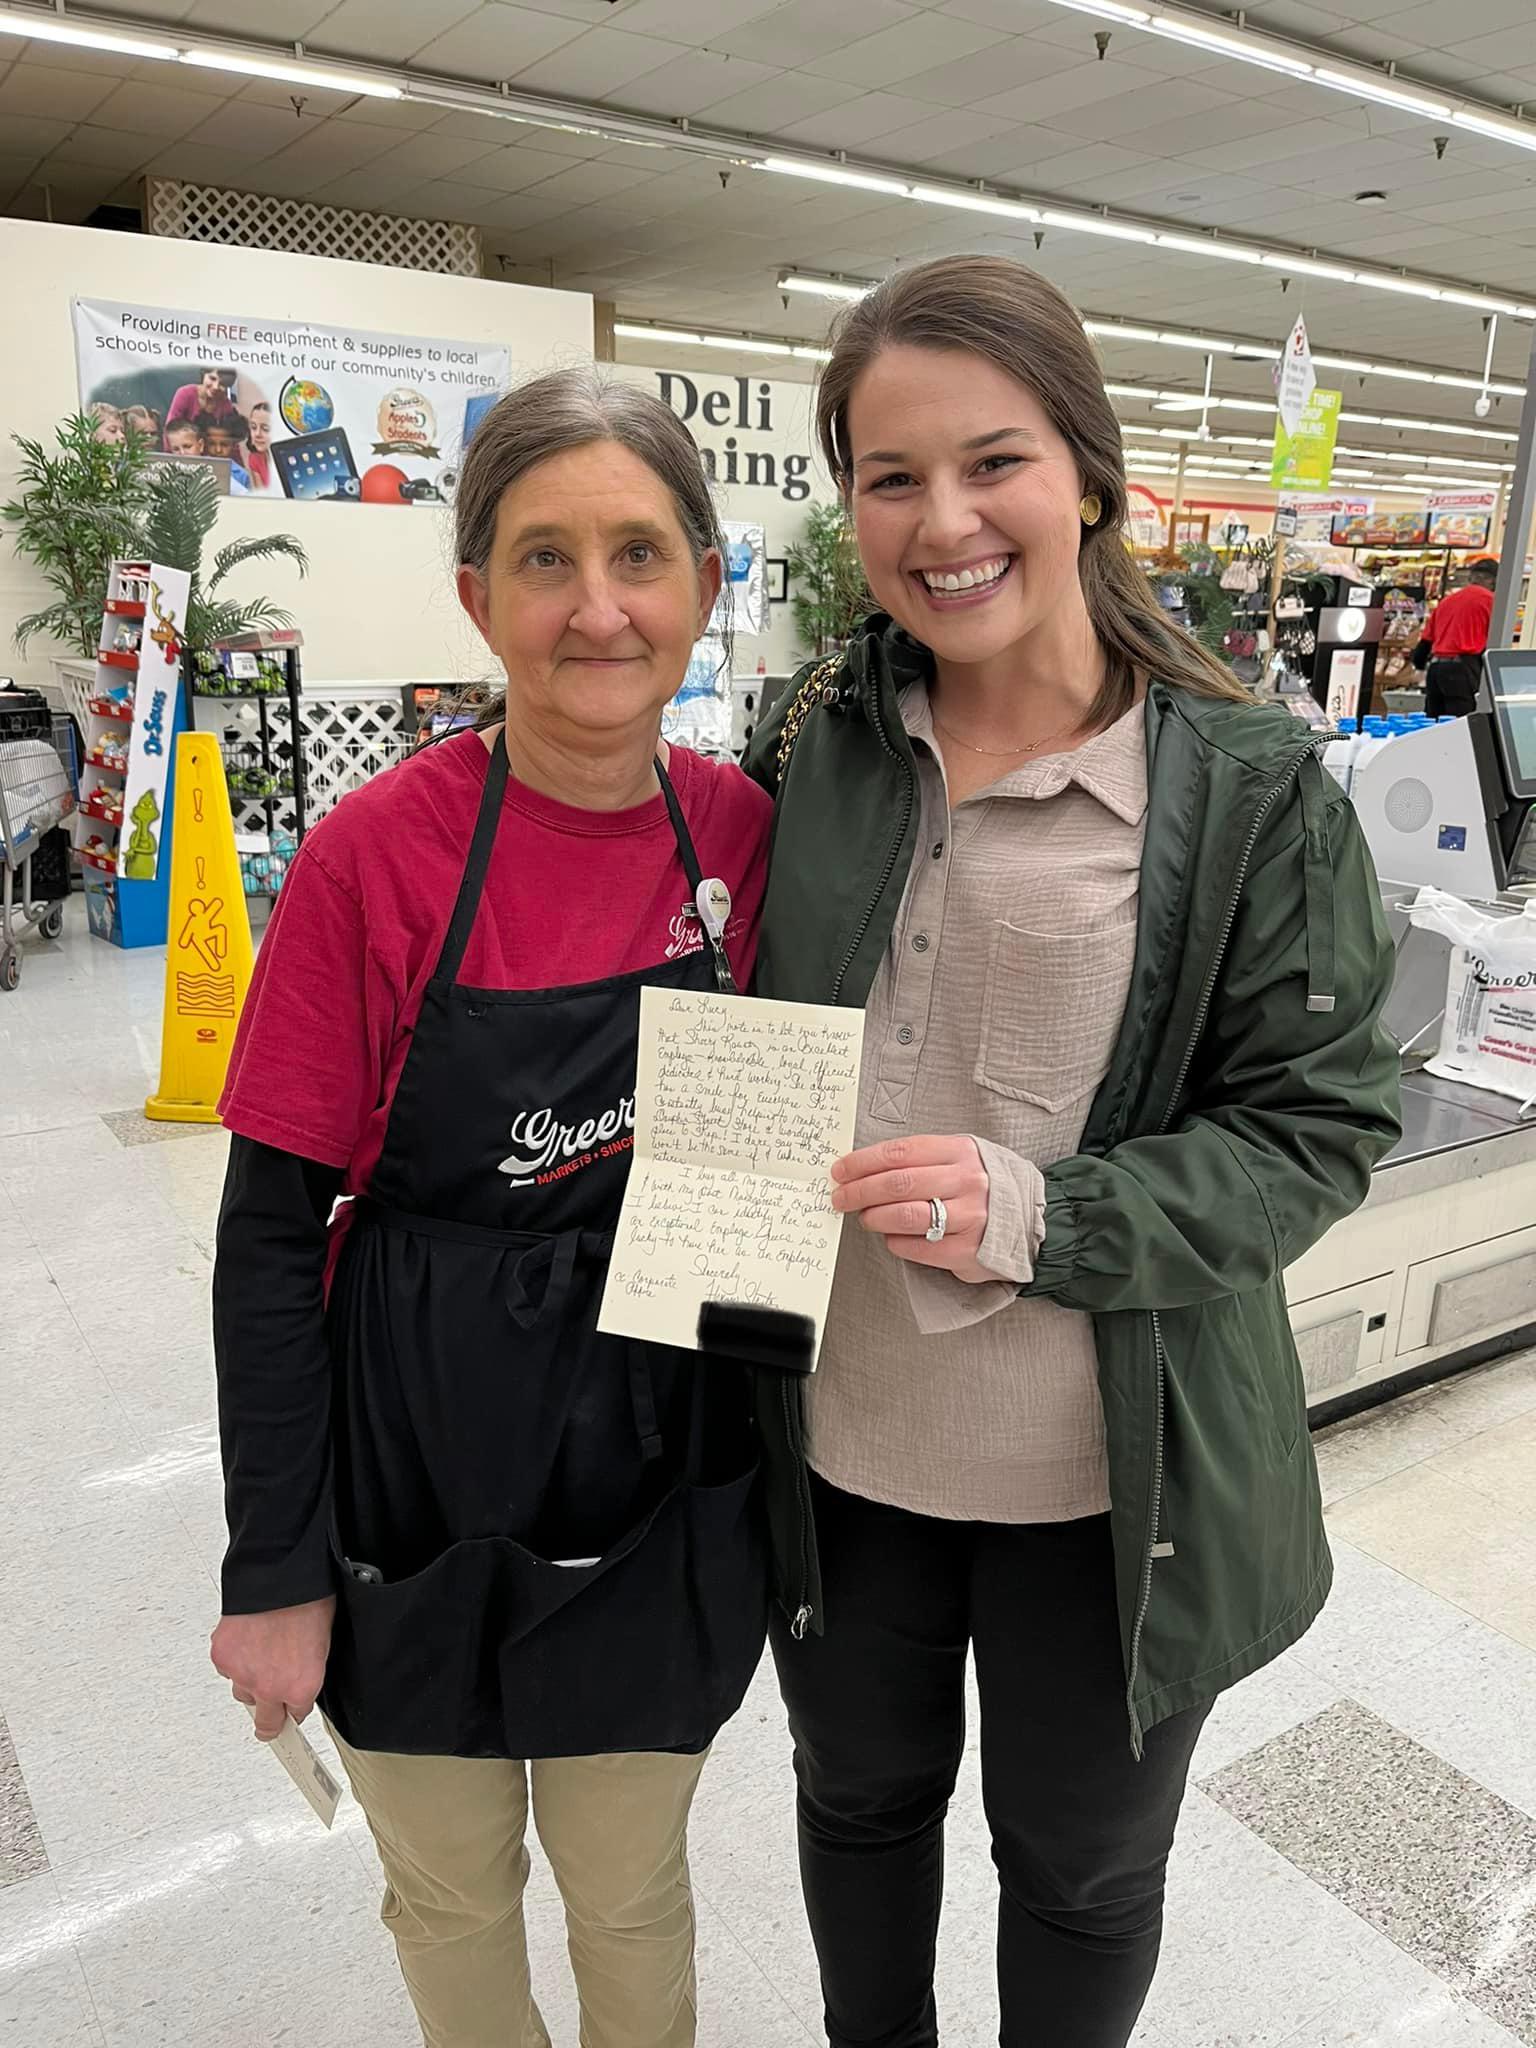 Providing FREE equipment & supplies to local
schools for the benefit of our community's children.
Apples
Students
Deli
TIME!
SHOP
ONLINE!
Dr. Seuss
Greer's
MARKETS • SINCE
Dear Lucy,
This note is to let you know
that Sherry is an excellent
Employee - Knowledgeable, loyal, efficient,
dedicated & hard working. She always
has a smile for everyone. She is
Constantly busy helping to make the
Street Store a wonderful
place to shop! I dare say the store
won't be the same if & when she
retires.
I buy all my groceries at
& with my past Management experience
I believe I can identify her as
an exceptional Employee. Greers is so
lucky to have her as an Employee.
Sincerely,
cc Corporate
Office
Greer's